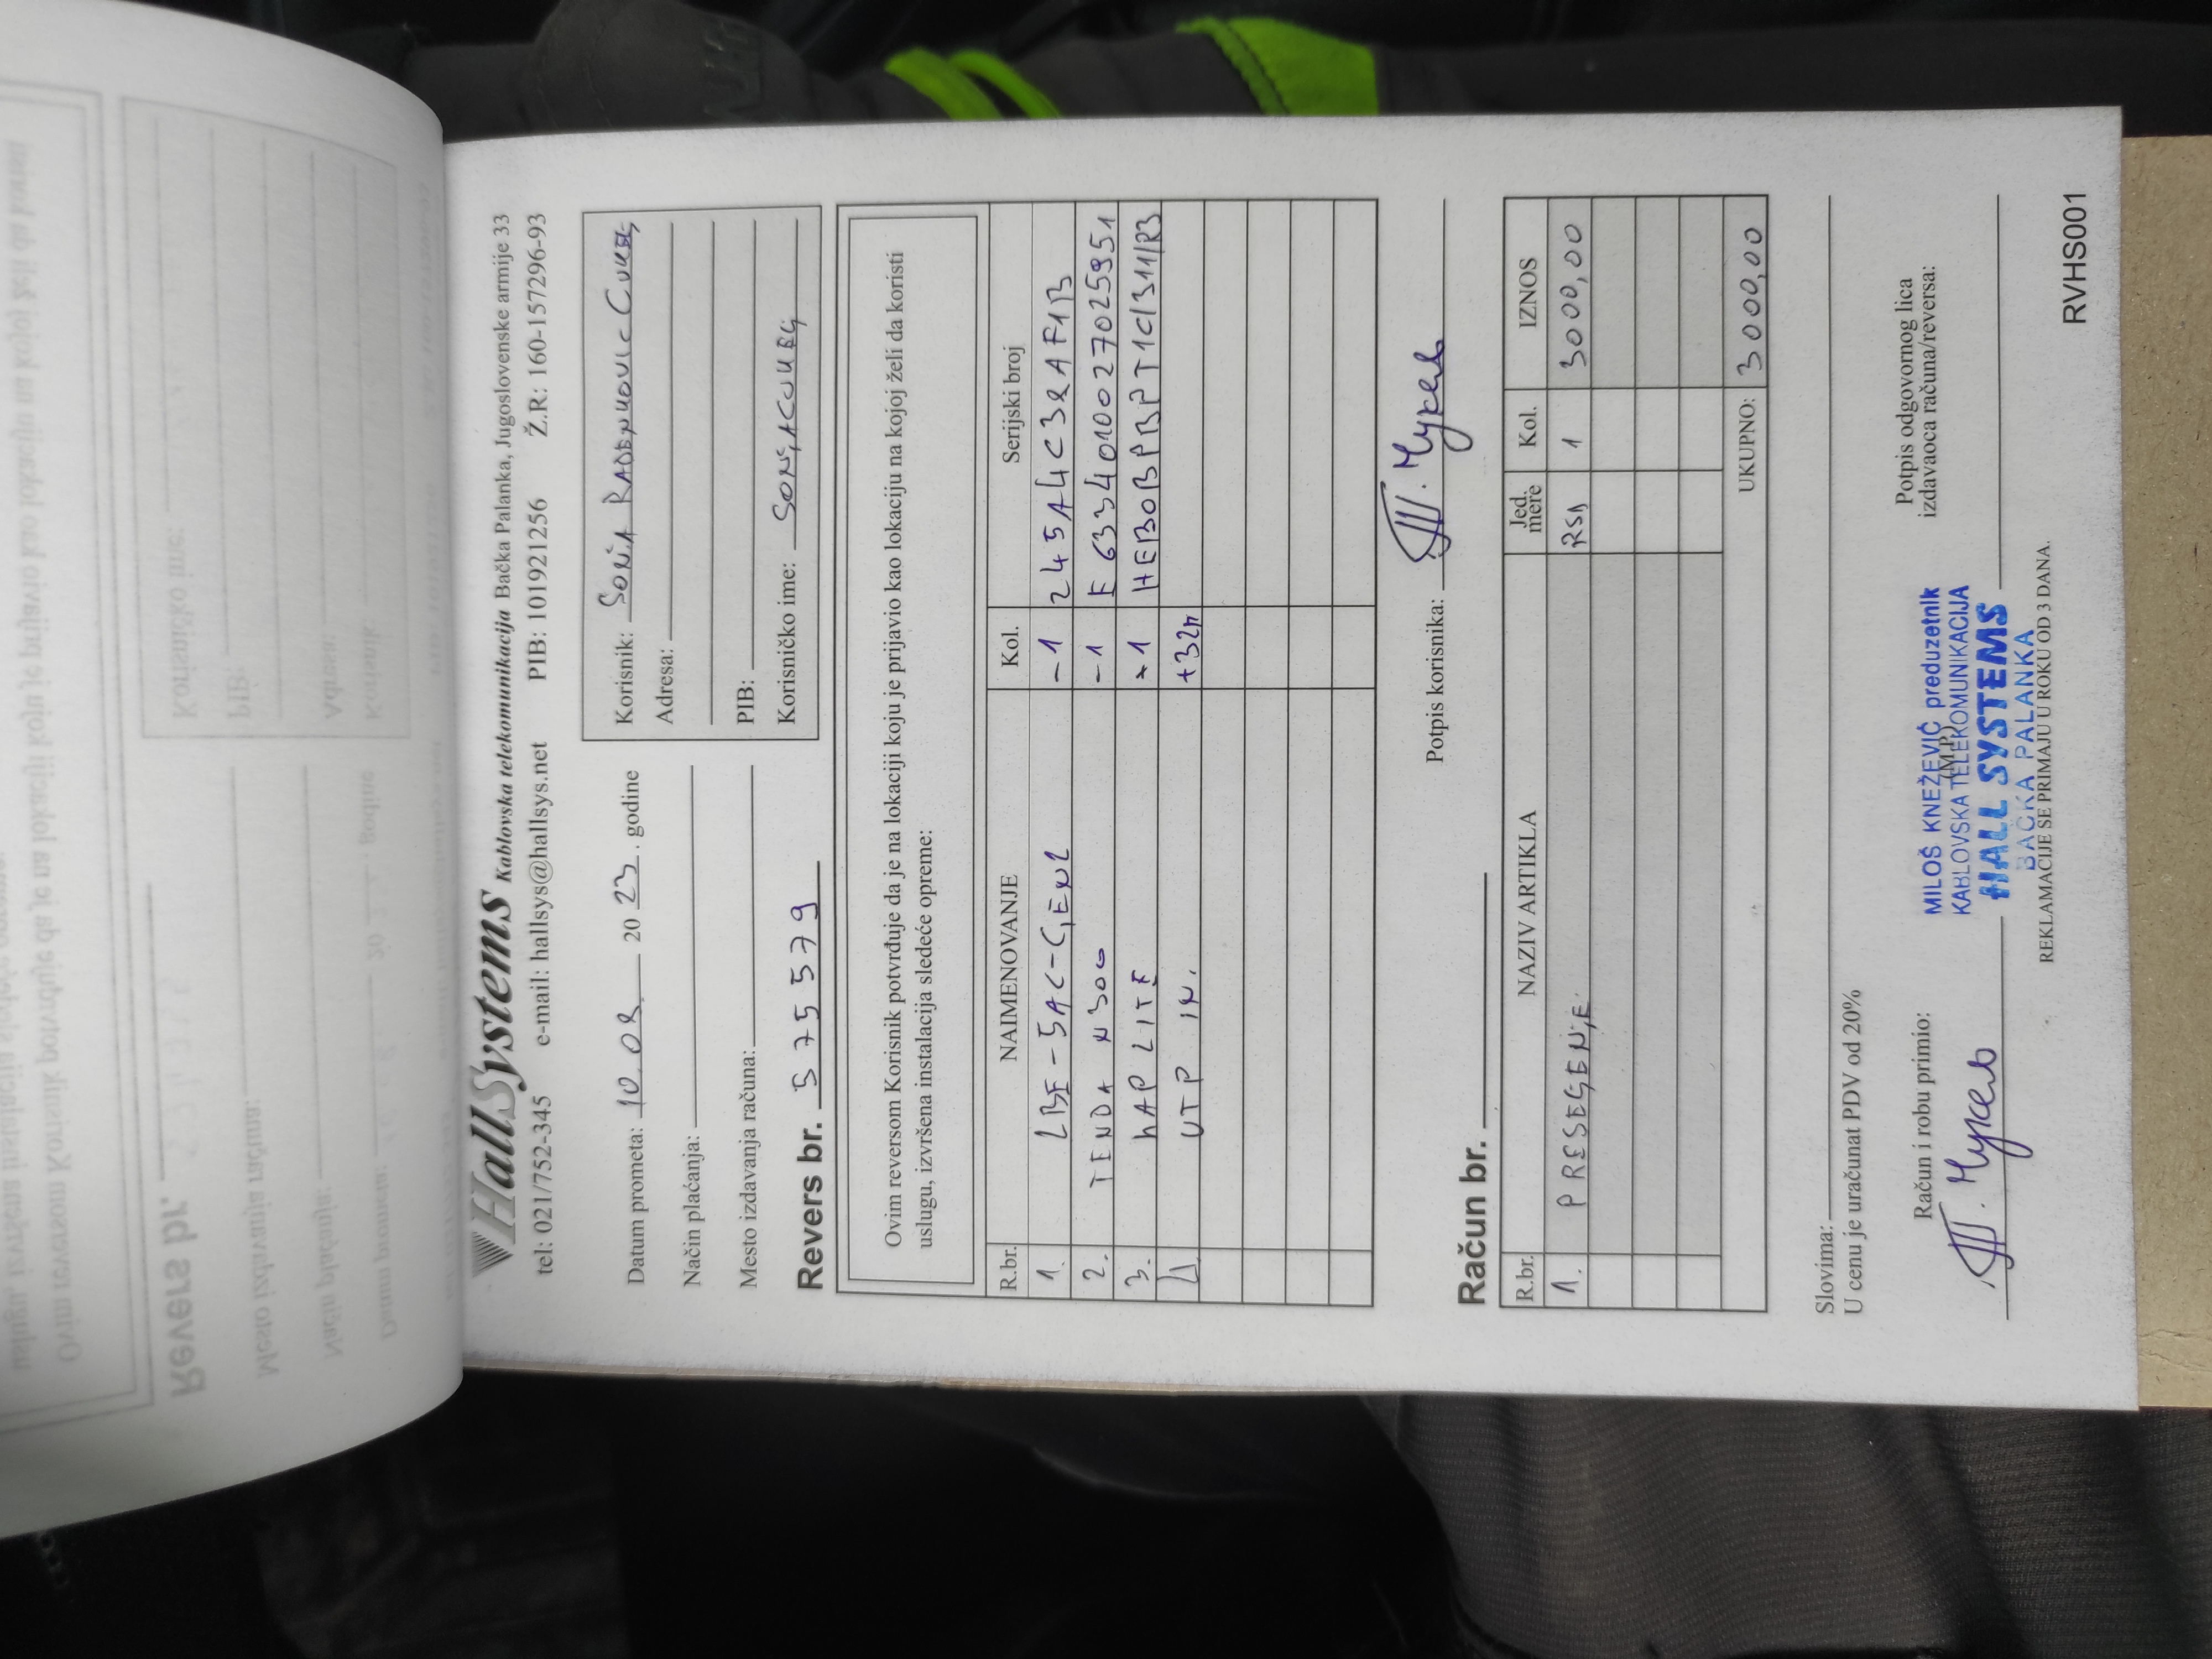 HallSystems Kablovska telekomunikacija Bačka Palanka, Jugoslovenske armije 33
tel: 021/752-345 e-mail: hallsys@hallsys.net PIB: 101921256 Ž.R: 160-157296-93
Datum prometa: 10.08. 2023. godine
Način plaćanja:
Mesto izdavanja računa:
Revers br. 575579
Korisnik: SONJA RADENKOVIC CUKEL
Adresa:
PIB:
Korisničko ime: SONJACUKEL
Ovim reversom Korisnik potvrđuje da je na lokaciji koju je prijavio kao lokaciju na kojoj želi da koristi
uslugu, izvršena instalacija sledeće opreme:
R.br. NAIMENOVANJE Kol. Serijski broj
1. LBE-5AC-GEN2 -1 245A4C3RAF1B
2. TENDA N300 -1 E6334010027025951
3. hAP LITE +1 HEB0BPBPT1C/311/R3
4. UTP IN. +32m
Potpis korisnika:
Račun br.
R.br. NAZIV ARTIKLA Jed. mere Kol. IZNOS
1. PRESEGENJE RSD 1 3000,00
UKUPNO: 3000,00
Slovima:
U cenu je uračunat PDV od 20%
Račun i robu primio:
(M.P.)
Potpis odgovornog lica
izdavaoca računa/reversa:
MILOŠ KNEŽEVIĆ preduzetnik
KABLOVSKA TELEKOMUNIKACIJA
HALL SYSTEMS
BAČKA PALANKA
REKLAMACIJE SE PRIMAJU U ROKU OD 3 DANA.
RVHS001